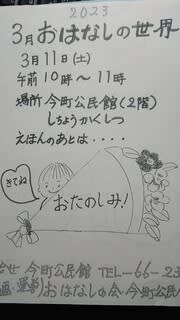 2023
3月 おはなしの世界
3月11日(土)
午前10時～11時
場所 今町公民館(2階)
しちょうかくしつ
えほんのあとは・・・・
きてね
おたのしみ!
合せ 今町公民館 TEL-66-23
おはなしの会 今町公民